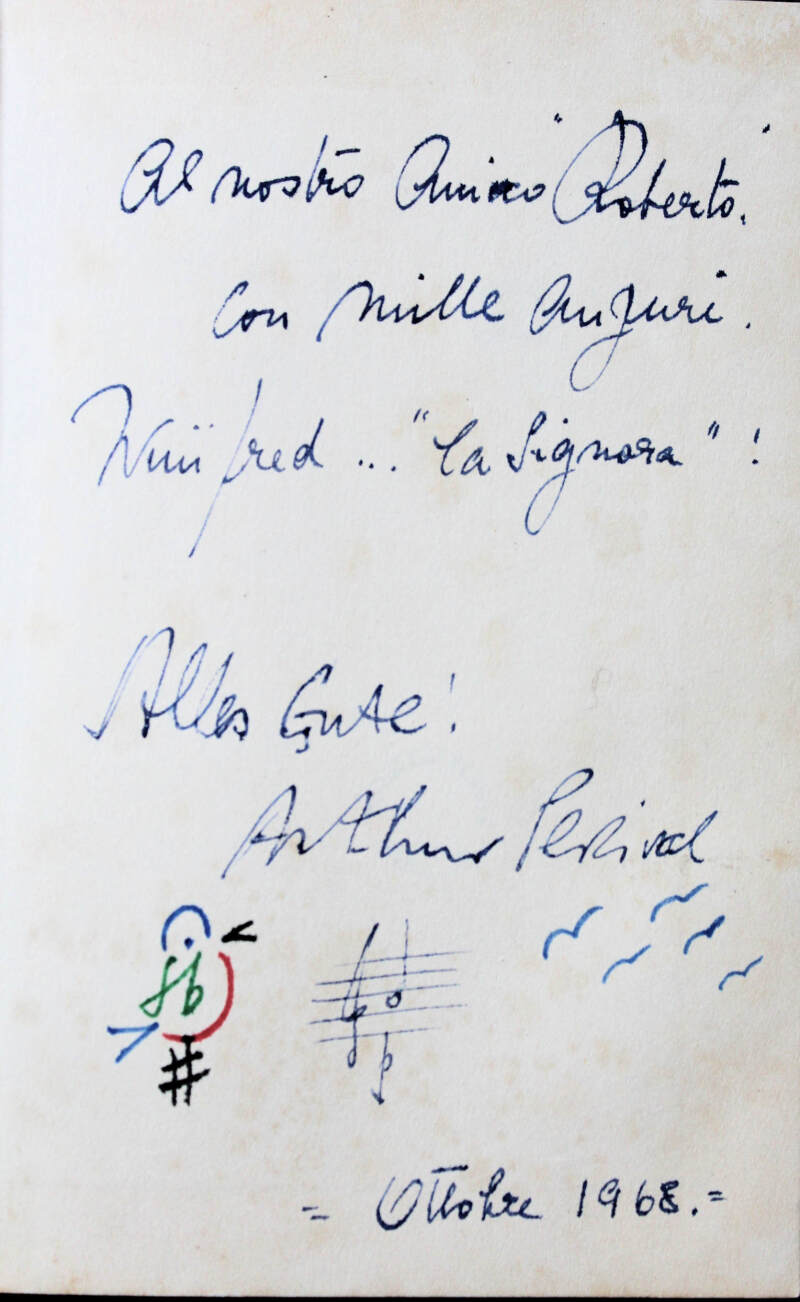 Al nostro Amico "Roberto".
con mille auguri.
Winifred ... "la Signora" !
Alles Gute!
Arthur
= Ottobre 1968.=